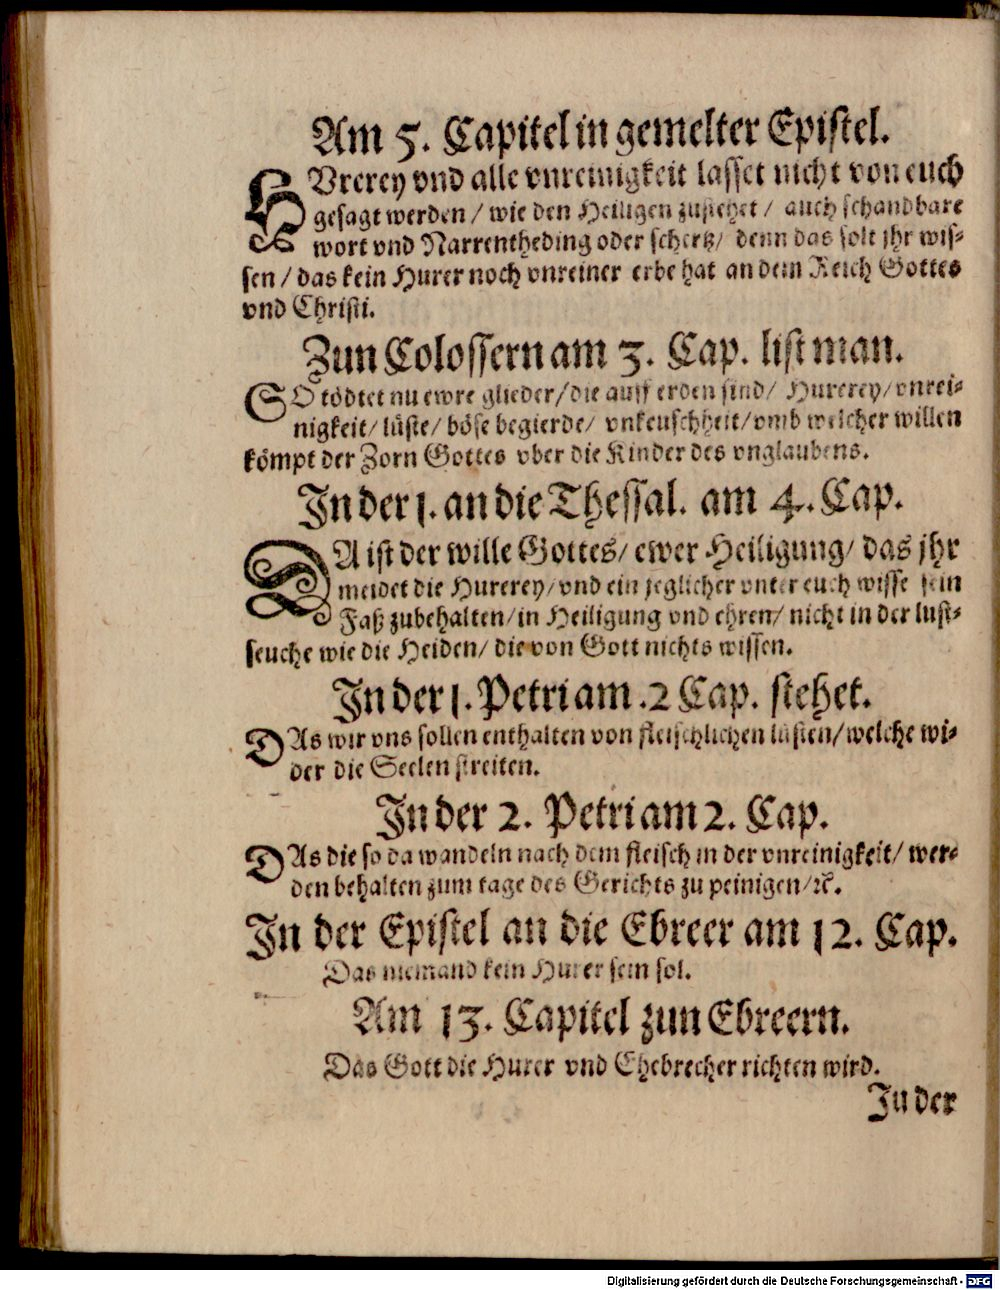 Am 5. Capitel in gemelter Epistel.
HVrerey vnd alle vnreinigkeit lasset nicht von euch
gesagt werden / wie den Heiligen zustehet / auch schandbare
wort vnd Narrentheding oder schertz / denn das solt jhr wis-
sen / das kein Hurer noch vnreiner erbe hat an dem Reich Gottes
vnd Christi.
Zun Colossern am 3. Cap. list man.
SO tödtet nu ewre glieder / die auff erden sind / Hurerey / vnrei-
nigkeit / lüste / böse begierde / vnkeuschheit / vmb welcher willen
kömpt der Zorn Gottes vber die Kinder des vnglaubens.
In der 1. an die Thessal. am 4. Cap.
DA ist der wille Gottes / ewer Heiligung / das jhr
meidet die Hurerey / vnd ein jeglicher vnter euch wisse sein
Faß zubehalten / in Heiligung vnd ehren / nicht in der lust-
seuche wie die Heiden / die von Gott nichts wissen.
In der 1. Petri am .2 Cap. stehet.
DAs wir vns sollen enthalten von fleischlichen lüsten / welche wi-
der die Seelen streiten.
In der 2. Petri am 2. Cap.
DAs die so da wandeln nach dem fleisch in der vnreinigkeit / wer-
den behalten zum tage des Gerichts zu peinigen / ꝛc.
In der Epistel an die Ebreer am 12. Cap.
Das niemand kein Hurer sein sol.
Am 13. Capitel zun Ebreern.
Das Gott die Hurer vnd Ehebrecher richten wird.
In der
Digitalisierung gefördert durch die Deutsche Forschungsgemeinschaft - DFG